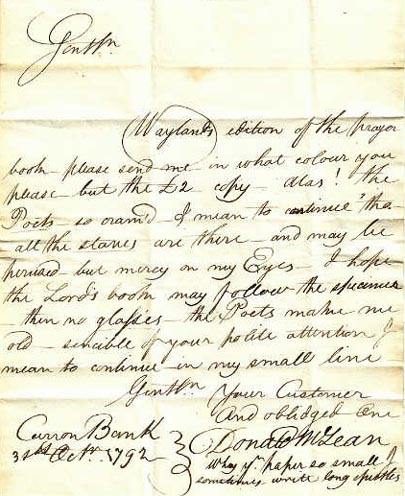 Gentln
Wayland's edition of the prayer
book - please send me in what colour you
please - but the £2 copy - alas! the
Poets so cram'd I mean to continue tho
all the staves are there - and may be
perused - but mercy on my Eyes - I hope
the Lord's book may follow the specimen
- then no glasses - the Poets make me
old - sincible of your polite attention I
mean to continue in my small line
Gentln
Your Customer
And obliged One
Donald McLean
Carron Bank
31st Octr. 1792
Why yr. paper so small I
sometimes write long epistles